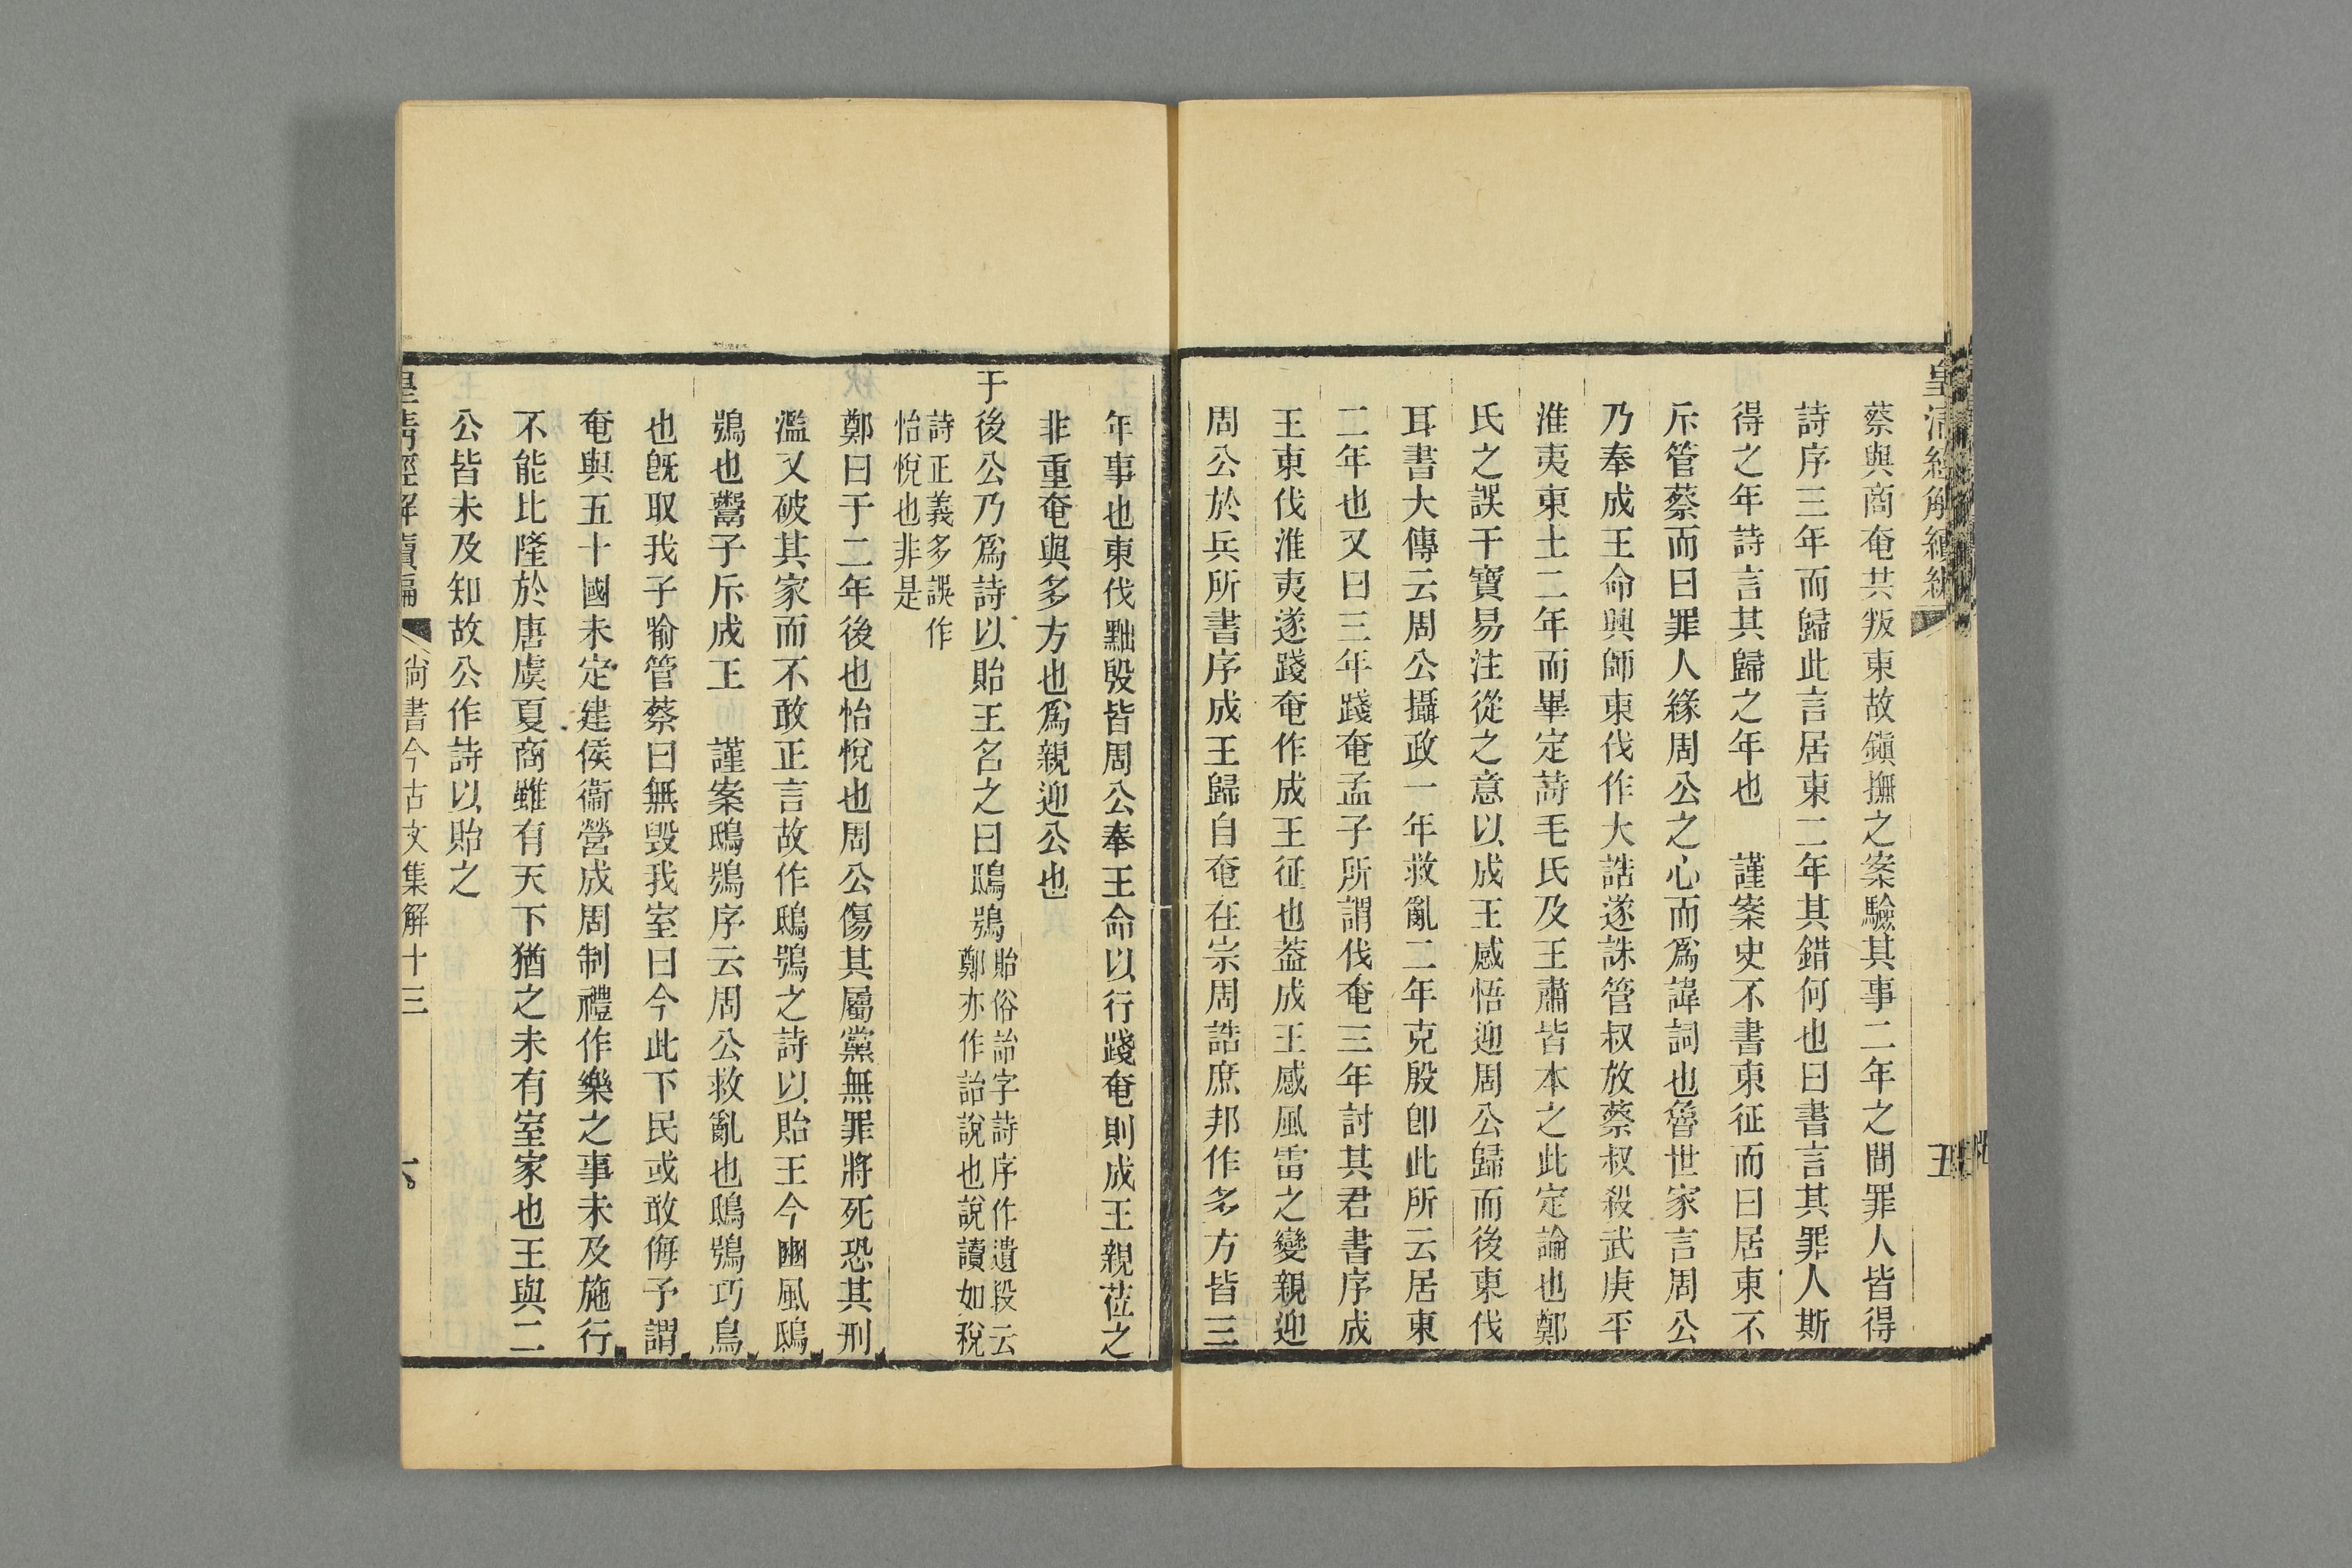 蔡與商奄共叛東故鎭撫之案驗其事二年之間罪人皆得
詩序三年而歸此言居東二年其錯何也曰書言其罪人斯
得之年詩言其歸之年也　謹案史不書東征而曰居東不
斥管蔡而曰罪人緣周公之心而爲諱詞也魯世家言周公
乃奉成王命興師東伐作大誥遂誅管叔放蔡叔殺武庚平
淮夷東土二年而畢定蒔毛氏及王肅皆本之此定論也鄭
氏之誤干寶易注從之意以成王感悟迎周公歸而後東伐
耳書大傳云周公攝政一年救亂二年克殷卽此所云居東
二年也又曰三年踐奄孟子所謂伐奄三年討其君書序成
王東伐淮夷遂踐奄作成王征也葢成王感風雷之變親迎
周公於兵所書序成王歸自奄在宗周誥庶邦作多方皆三
五
年事也東伐黜殷皆周公奉王命以行踐奄則成王親莅之
非重奄與多方也爲親迎公也
于後公乃爲詩以貽王名之曰鴟鴞
貽俗詒字詩序作遺段云
鄭亦作詒說也說讀如稅
詩正義多誤作
怡悅也非是
鄭曰于二年後也怡悅也周公傷其屬黨無罪將死恐其刑
濫又破其家而不敢正言故作鴟鴞之詩以貽王今豳風鴟
鴞也鬻子斥成王　謹案鴟鴞序云周公救亂也鴟鴞巧鳥
也旣取我子喻管蔡曰無毀我室曰今此下民或敢侮予謂
奄與五十國未定建侯衞營成周制禮作樂之事未及施行
不能比隆於唐虞夏商雖有天下猶之未有室家也王與二
公皆未及知故公作詩以貽之
皇清經解續編　尚書今古文集解十三　六